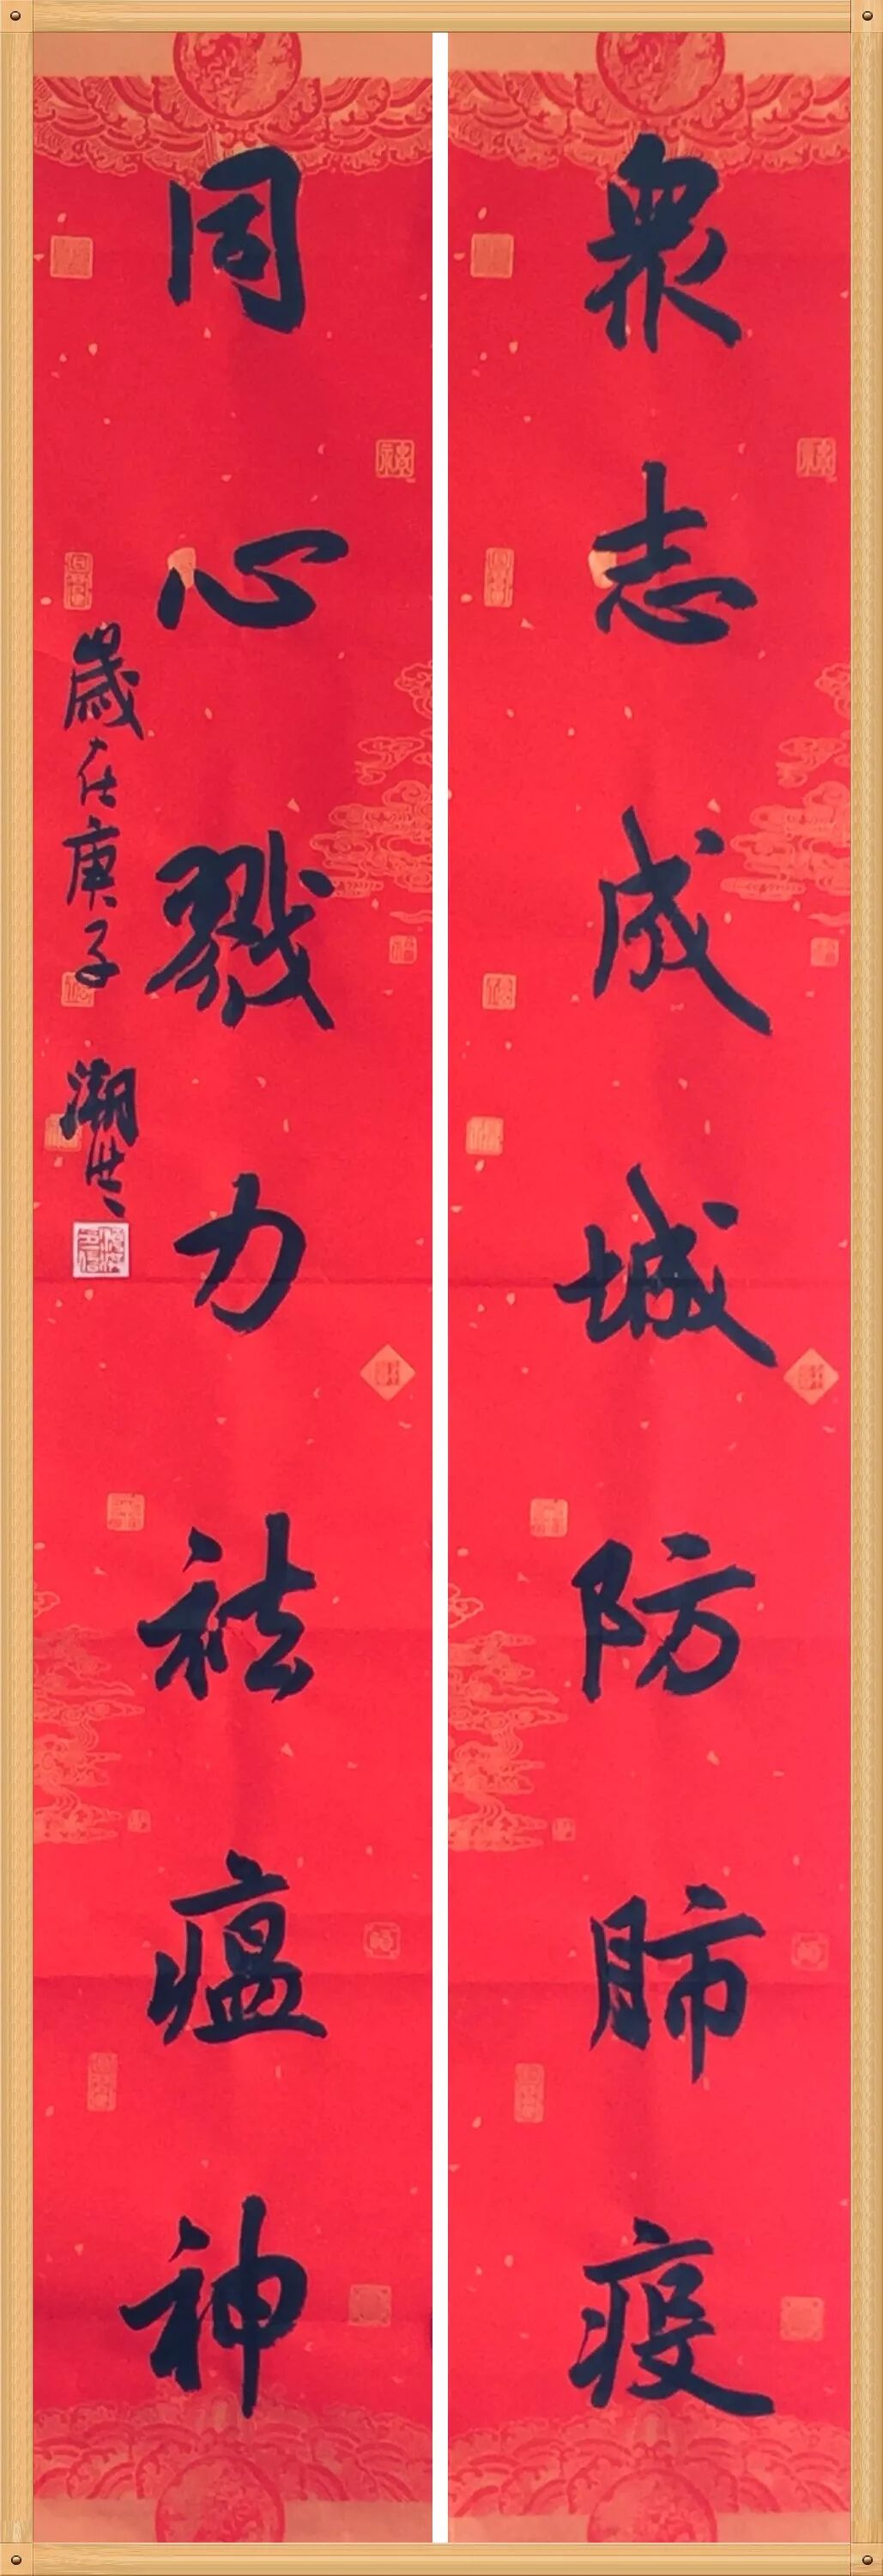 衆志成城防肺疫
同心戮力祛瘟神
歲在庚子